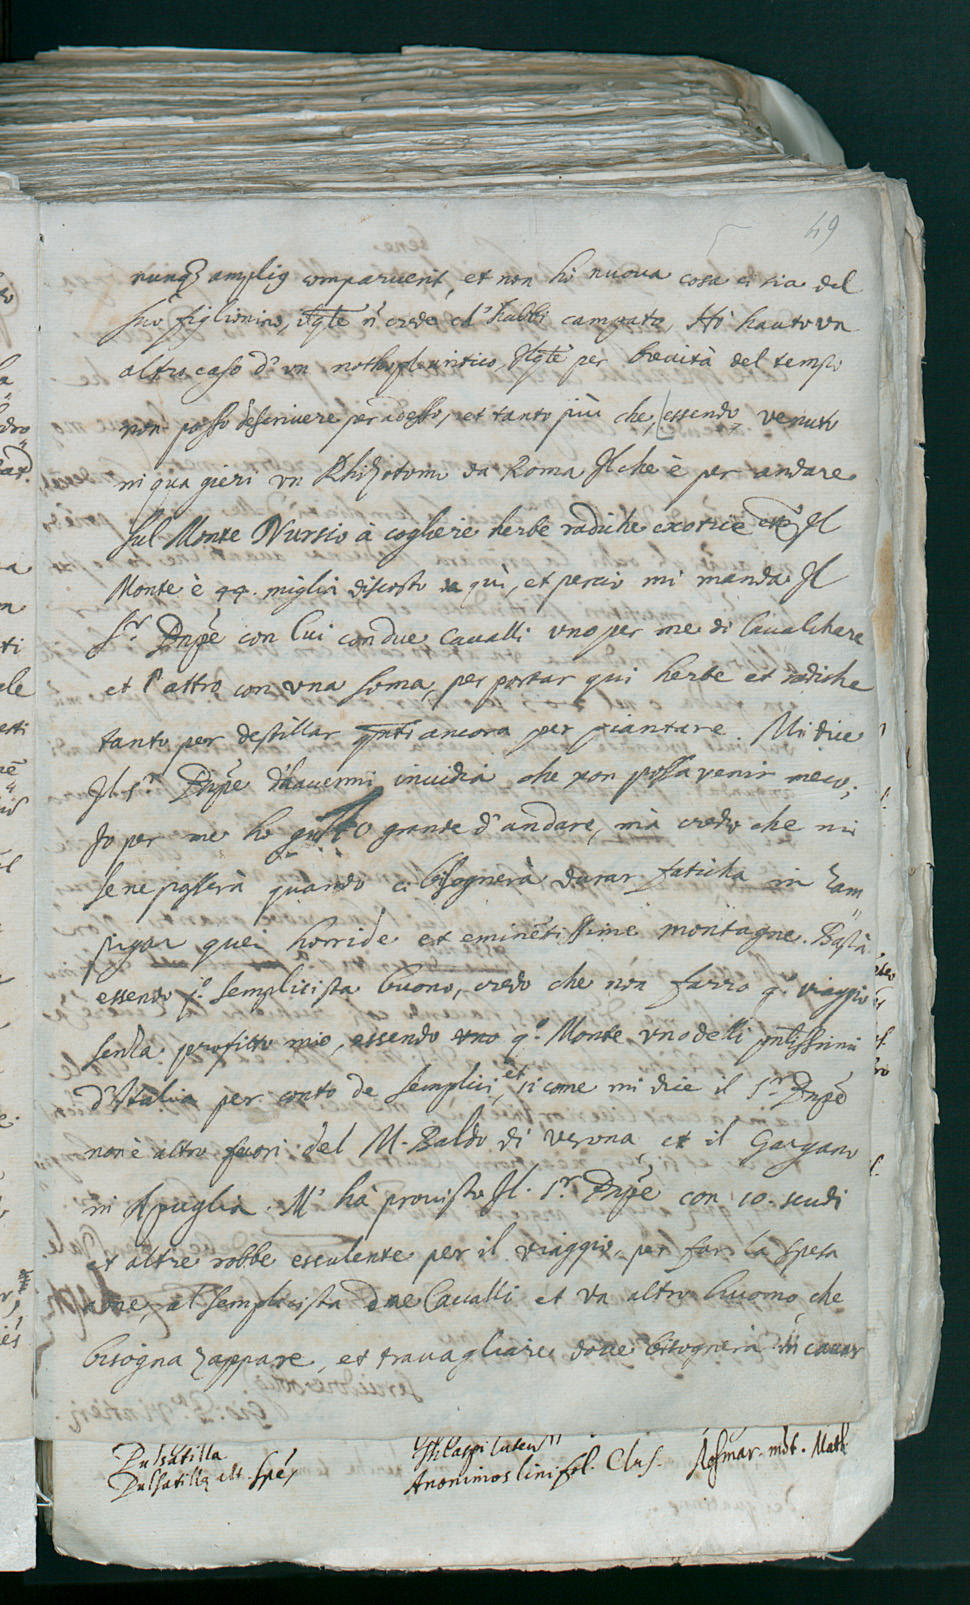 49
nunq3 ampli9 comparuerit, et non hò nuova cosa ci sia del
suo figliolino, ilqle ñ credo ch' habbi campato. Hò hauto un
altro caso d' un nothopleuritico, Ilqle per brevità del tempo
non posso descrivere per adesso, et tanto più che, essendo venuto
in qua gieri un Rhizotomo da Roma Il che è per andare
sul Monte Nursio à cogliere herbe radiche exotice etc Il
Monte è 44. miglia discosto da qui, et perciò mi manda Il
Sr Dnpe con lui con due cavalli uno per me di Cavalchare
et l' altro con una soma, per portar qui herbe et radiche
tanto per destillar qnto ancora per piantare. Mi dice
Il Sr Dnpe d'havermi invidia che non possa venir meco;
Io per me ho gusto grande d' andare, mà credo che mi
se ne passerà quando ci bisognerà durar faticha in ram
picar quei horride et eminētissime montagne. Bastà
essendo q.o semplicista buono, credo che non farro q.o viaggio
senza profitto mio, essendo q.o Monte uno delli pntissimi
d'Italia per conto de semplici, et sicome mi dice il Sr Dnpe
non è altro fuori del M. Baldo di Verona et il Gargano
in Apuglia. M' hà provisto Il. Sr Dnpe con 10. scudi
et altre robbe esculente per il viaggio, per far la spesa
a me, al semplicista due Cavalli et un altro huomo, che
bisogna zappare, et travagliare dove bisognerà in cavar
Pulsatilla
Pulsatilla alt. Spēs
Thlaspi luteum
Anonimos lini fol. Clus.
Rosmar. mõt. Math